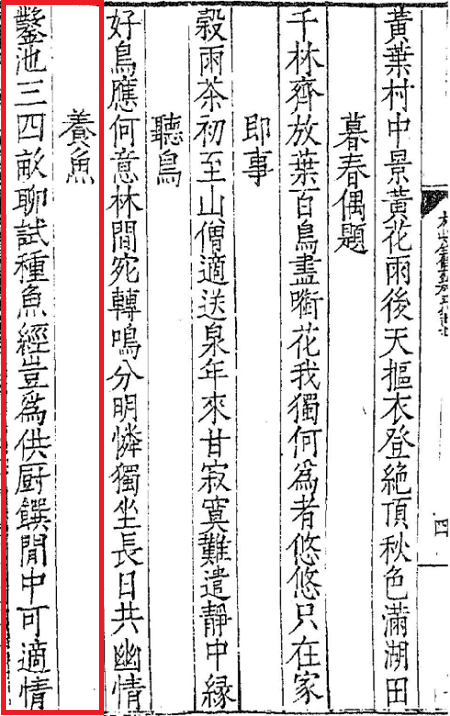 黃葉村中景黃花雨後天摳衣登絕頂秋色滿湖田
暮春偶題
千林齊放葉百鳥盡啣花我獨何為者悠悠只在家
即事
穀雨茶初至山僧適送泉年來甘寂寞難遣靜中緣
聽鳥
好鳥應何意林間宛轉鳴分明憐獨坐長日共幽情
養魚
鑿池三四畝聊試種魚經豈爲供厨饌閒中可適情
四